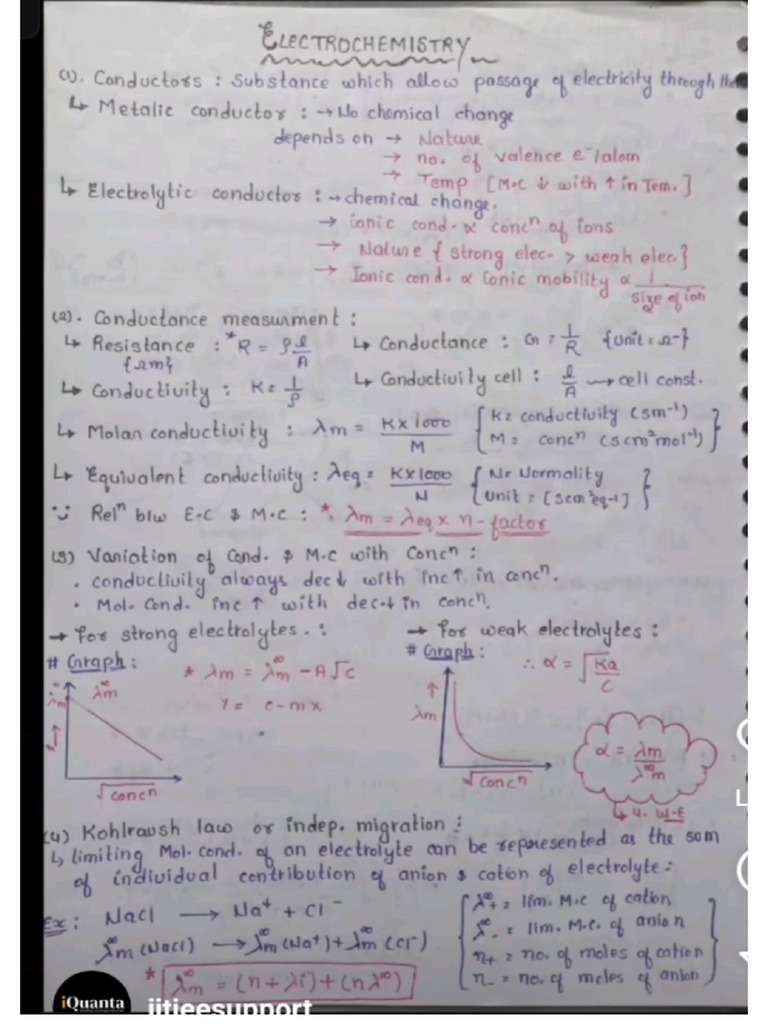 ELECTROCHEMISTRY
(1). Conductors : Substance which allow passage of electricity through the
↳ Metalic conductor : → No chemical change
depends on → Nature
→ no. of valence e⁻/atom
→ Temp [M.C ↓ with ↑ in Tem.]
↳ Electrolytic conductor : → chemical change.
→ ionic cond. ∝ concⁿ of ions
→ Nature { strong elec. > weak elec.}
→ Ionic cond. ∝ ionic mobility ∝ 1/size of ion
(2). Conductance measurment :
↳ Resistance : *R = ρ l/A ↳ Conductance : G = 1/R {Unit = Ω⁻}
{Ωm}
↳ Conductivity : K = 1/ρ ↳ Conductivity cell : l/A → cell const.
↳ Molar conductivity : λm = K×1000/M { K = conductivity (Sm⁻¹)
M = concⁿ (Scm²mol⁻¹) }
↳ Equivalent conductivity : λeq = K×1000/N { N = Normality
Unit = [Scm²eq⁻¹] }
∵ Relⁿ b/w E.C & M.C : * λm = λeq × n-factor
(3) Variation of Cond. & M.C with Concⁿ :
• conductivity always dec↓ with inc↑ in concⁿ.
• Mol. Cond. inc ↑ with dec↓ in concⁿ.
→ for strong electrolytes. : → for weak electrolytes :
# Graph : # Graph :
* λm = λ∞m − A√c ∴ α = √Ka/C
Y = c − mx
λ∞m λ∞m
λm
α = λm/λ∞m
√concⁿ √concⁿ
↳ 4. W.E
(4) Kohlraush law or indep. migration :
↳ limiting Mol. Cond. of an electrolyte can be represented as the som
of individual contribution of anion & cation of electrolyte :
Ex : Nacl → Na⁺ + Cl⁻
λ∞m (Nacl) → λ∞m (Na⁺) + λ∞m (Cl⁻)
* λ∞m = (n + λi) + (nλ∞)
λ∞+ = lim. M.C of cation
λ∞- = lim. M.C. of anion
n+ = no. of moles of cation
n- = no. of moles of anion
iQuanta
iitjeesupport